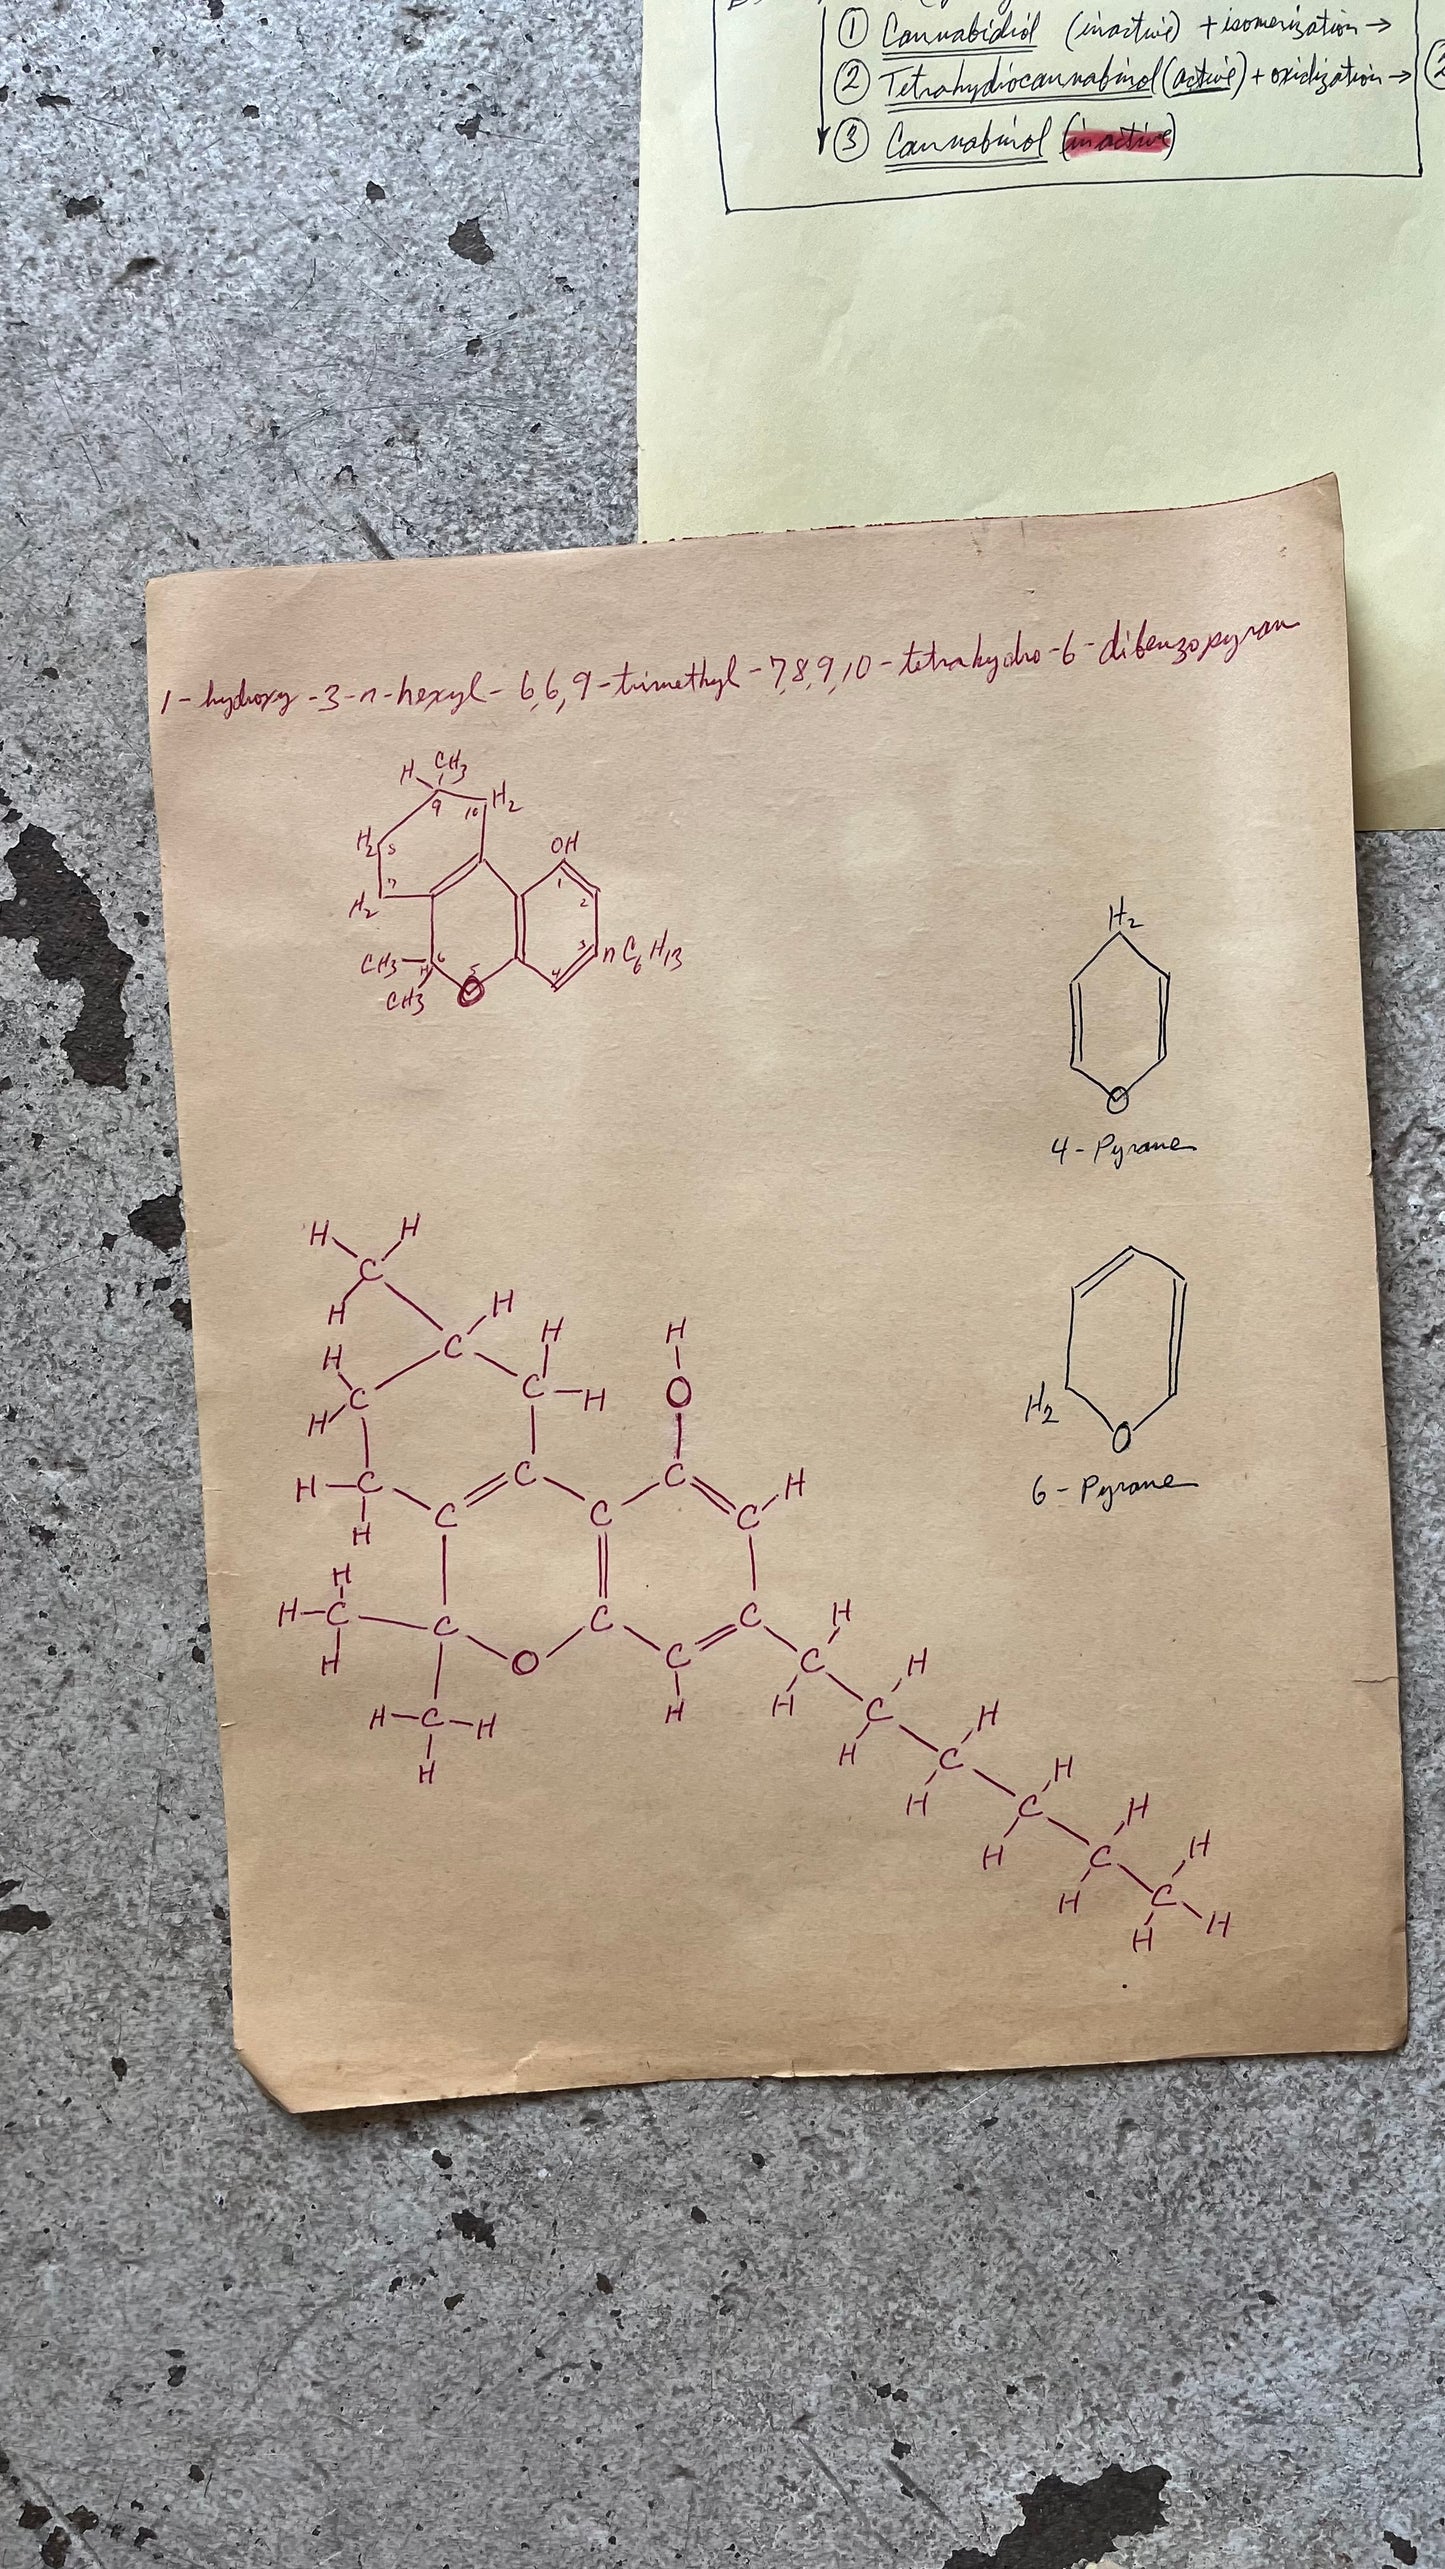 ① Cannabidiol (inactive) + isomerization →
② Tetrahydrocannabinol (active) + oxidization →
③ Cannabinol (inactive)
1-hydroxy-3-n-hexyl-6,6,9-trimethyl-7,8,9,10-tetrahydro-6-dibenzopyran
H CH3
9 10 H2
H2 8
OH
7 1
H2 2
CH3 6 5 3 n C6H13
H 4
CH3 O
H2
O
4-Pyrane
H2
O
6-Pyrane
H H
C
H H
C H H
H C
C H O
H
H C C C H
C C
H
H
H C C C C H
H O C
H C H H H C
H H C
H H H
C
H H
C
H H
C H
H C
H H